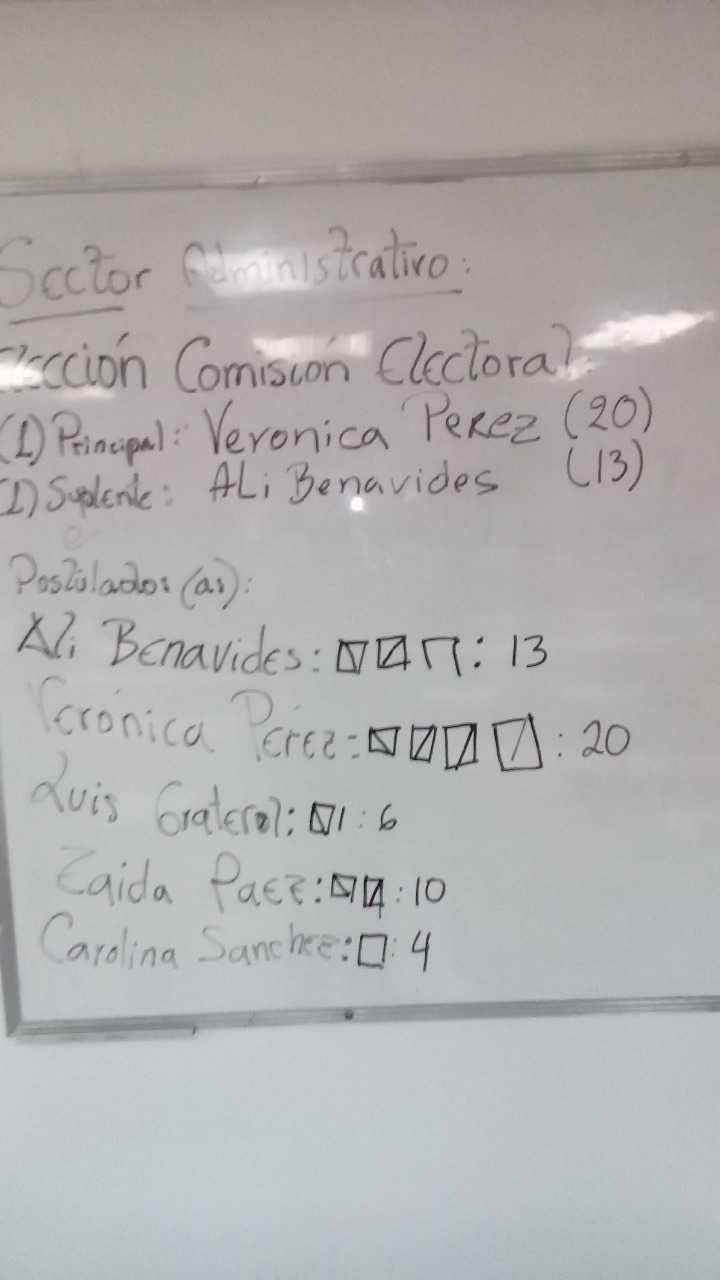 Sector Administrativo:
Elección Comisión Electoral:
(1) Principal: Veronica Perez (20)
(1) Suplente: ALi Benavides (13)
Postulados (as):
Ali Benavides: : 13
Verónica Pérez: : 20
Luis Graterol: : 6
Zaida Paez: : 10
Carolina Sanchez: : 4